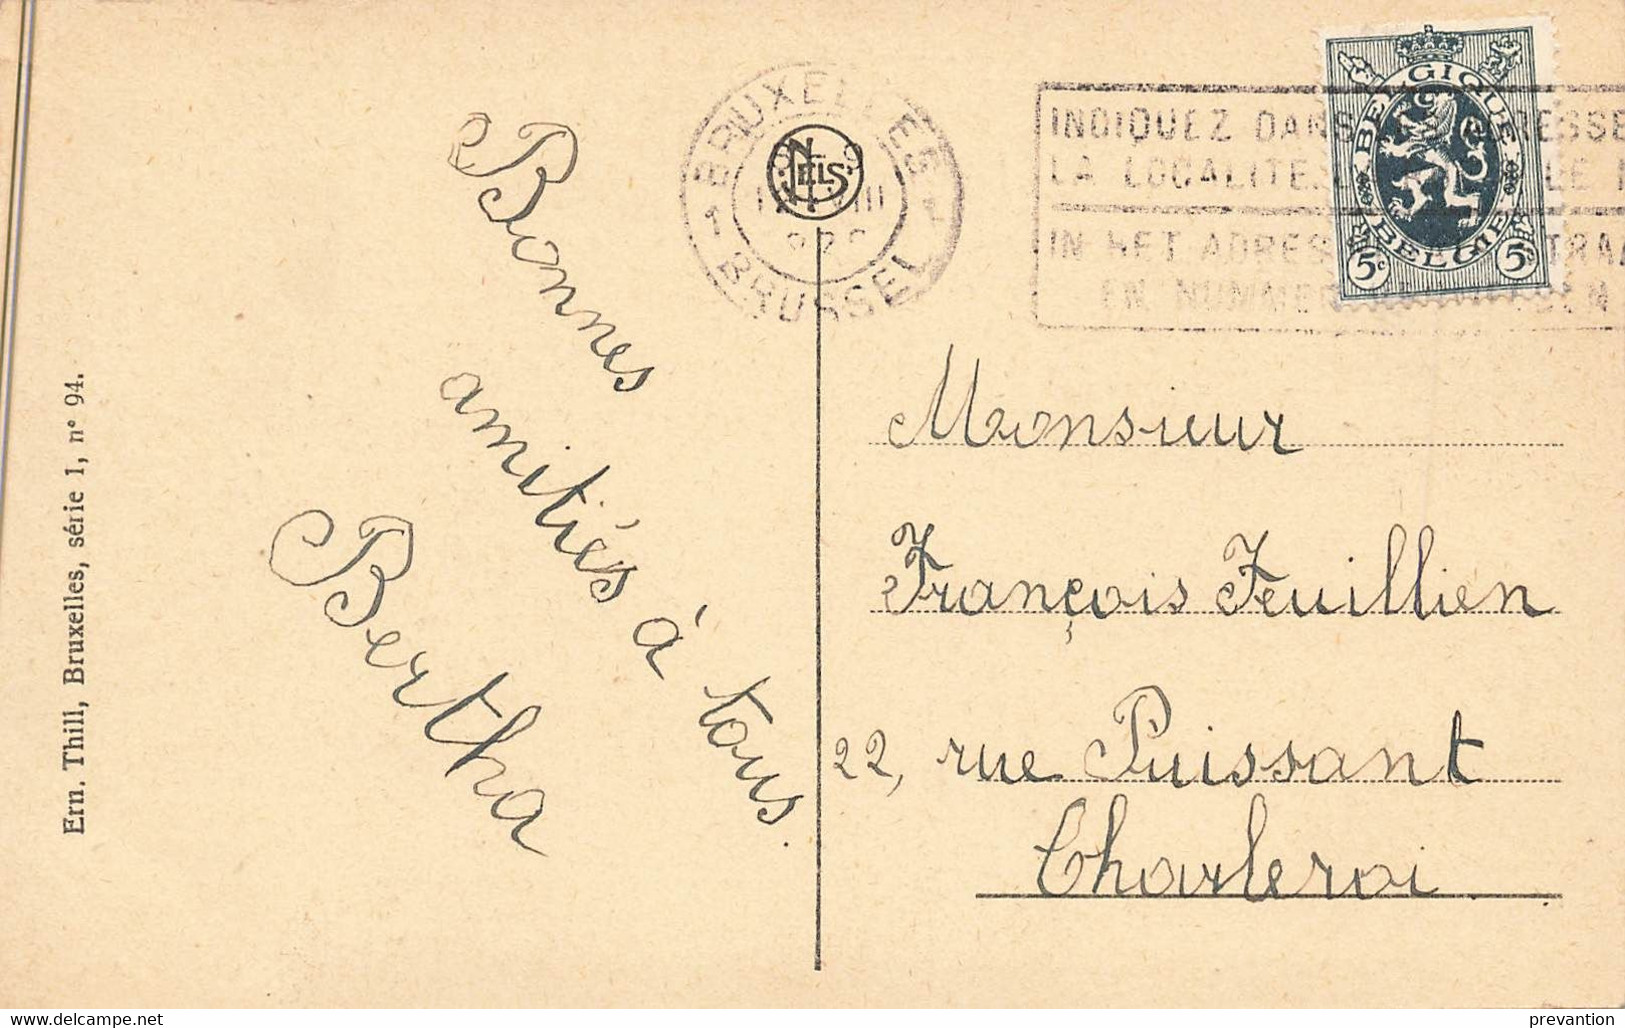 Ern. Thill, Bruxelles, série 1, n° 94.
Bonnes
amitiés à tous.
Bertha
NELS
BRUXELLES
1 1
BRUSSEL
INDIQUEZ DANS
LA LOCALITE
IN HET ADRES
EN NUMMER
BELGIQUE
BELGIË
5c 5c
Monsieur
François Feuillien
22, rue Puissant
Charleroi
www.delcampe.net
prevantion